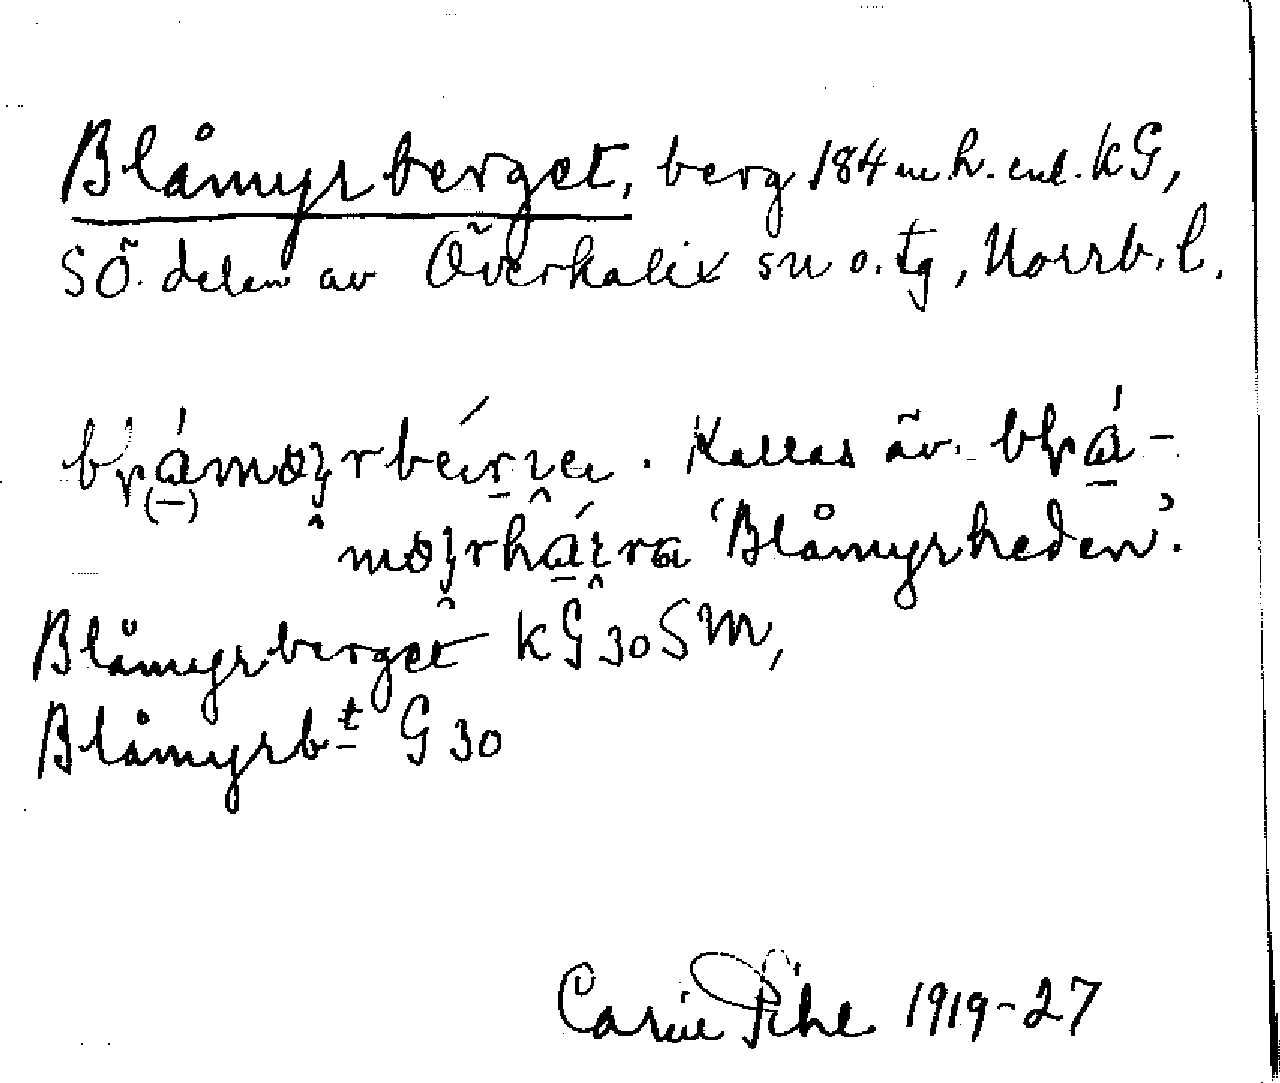 Blåmyrberget, berg 184 m h. enl. kG,
SÖ. delen av Överkalix sn o. tg, Norrb. l.
. Kallas äv.
'Blåmyrheden'.
Blåmyrberget kG 30 SM,
Blåmyrbt G 30
Carin Pihl 1919-27